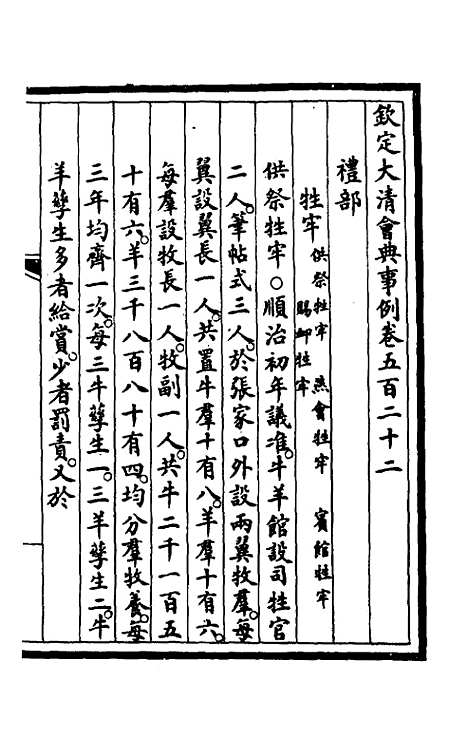 欽定大清會典事例卷五百二十二
禮部
牲牢 供祭牲牢 燕會牲牢 賓館牲牢
賜卹牲牢
供祭牲牢○順治初年議准。牛羊館設司牲官
二人。筆帖式三人。於張家口外設兩翼牧羣。每
翼設翼長一人。共置牛羣十有八。羊羣十有六。
每羣設牧長一人。牧副一人。共牛二千一百五
十有六。羊三千八百八十有四。均分羣牧養。每
三年均齊一次。每三牛孳生一。三羊孳生二。牛
羊孳生多者給賞。少者罰責。又於